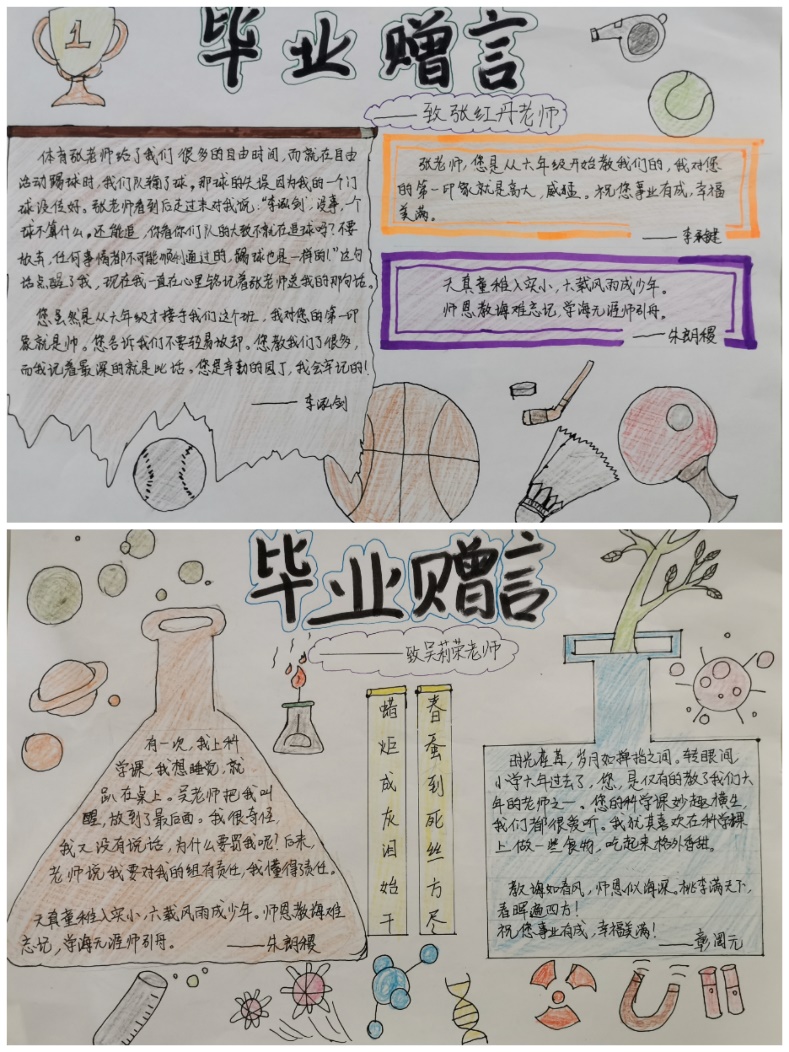 1
毕业赠言
——致张红丹老师
体育张老师给了我们很多的自由时间,而就在自由
活动踢球时,我们队输了球。那球的失误因为我的一个门
球没住好。张老师看到后走过来对我说:“李泓剑,没事,一个
球不算什么。还能追,你看你们队的大数不就在追球吗?不要
放弃,任何事情都不可能顺利通过的,踢球也是一样的!”这句
话点醒了我,现在我一直在心里铭记着张老师送我的那句话。
您虽然是从六年级才接手我们这个班,我对您的第一印
象就是帅。您告诉我们不要轻易放却。您教我们了很多,
而我记着最深的就是此话。您是辛勤的园丁,我会牢记的!
——李泓剑
张老师,您是从六年级开始教我们的,我对您
的第一印象就是高大,威猛。祝您事业有成,幸福
美满。
——李秉健
天真童稚入实小,六载风雨成少年。
师恩教诲难忘记,学海无涯师引舟。
——朱朗稷
毕业赠言
——致吴莉荣老师
有一次,我上科
学课,我想睡觉,就
趴在桌上。吴老师把我叫
醒,放到了最后面。我很奇怪,
我又没有说话,为什么要罚我呢?后来,
老师说我要对我的组有责任,我懂得了责任。
天真童稚入实小,六载风雨成少年。师恩教诲难
忘记,学海无涯师引舟。 ——朱朗稷
春蚕到死丝方尽
蜡炬成灰泪始干
时光荏苒,岁月如弹指之间。转眼间,
小学六年过去了,您,是仅有的教了我们六
年的老师之一。您的科学课妙趣横生,
我们都很爱听。我尤其喜欢在科学课
上做一些食物,吃起来格外香甜。
教诲如春风,师恩似海深。桃李满天下,
春晖遍四方!
祝您事业有成,幸福美满!
——彰阅元